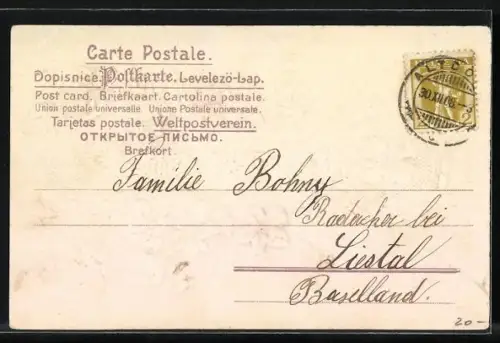 Carte Postale.
Dopisnice. Postkarte. Levelezö-Lap.
Post card. Briefkaart. Cartolina postale.
Union postale universelle. Unione Postale universale.
Tarjetas postale. Weltpostverein.
ОТКРЫТОЕ ПИСЬМО.
Brefkort.
ALTDORF
Familie Bohny
Radacher bei
Liestal
Baselland.
20-